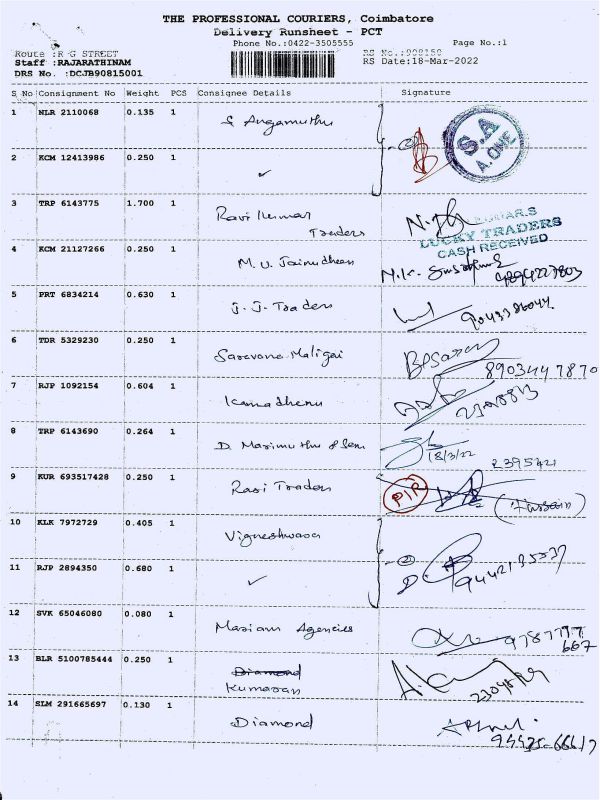 THE PROFESSIONAL COURIERS, Coimbatore
Delivery Runsheet - PCT
Phone No.:0422-3505555
Page No.:1
Route :R G STREET
RS No.:908150
Staff :RAJARATHINAM
RS Date:18-Mar-2022
DRS No. :DCJB90815001
S No Consignment No Weight PCS Consignee Details Signature
1 NLR 2110068 0.135 1 S Angamuthu
S.A
A.ONE
2 KCM 12413986 0.250 1 ✓
3 TRP 6143775 1.700 1 Ravi Kumar
Traders
LUCKY TRADERS
CASH RECEIVED
4 KCM 21127266 0.250 1 M. U. Jainudheen
5 PRT 6834214 0.630 1 J. J. Traders
6 TDR 5329230 0.250 1 Saravana Maligai
8903447870
7 RJP 1092154 0.604 1 Kamadhenu
8 TRP 6143690 0.264 1 D. Marimuthu & Sons
18/3/22
2395421
9 KUR 693517428 0.250 1 Ravi Traders
(Hussain)
10 KLK 7972729 0.405 1 Vigneshwara
11 RJP 2894350 0.680 1 ✓
12 SVK 65046080 0.080 1 Mariam Agencies
9787777
667
13 BLR 5100785444 0.250 1 Diamond
Kumaran
14 SLM 291665697 0.130 1 Diamond